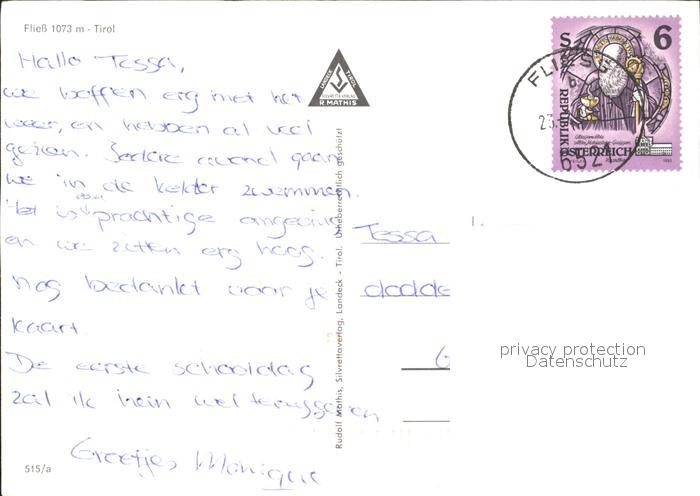 Fließ 1073 m - Tirol
Hallo Tessa,
we boffen erg met het
weer, en hebben al veel
gezien. Iedere avond gaan
we in de kelder zwemmen.
Het is een prachtige omgeving
en we zitten erg hoog.
Nog bedankt voor je
kaart.
De eerste schooldag
zal ik hem wel teruggeven
Groetjes Monique
515/a
LANDECK TIROL
SILVRETTA-VERLAG
R. MATHIS
Rudolf Mathis, Silvrettaverlag, Landeck - Tirol. Urheberrechtlich geschützt
6
REPUBLIK
ÖSTERREICH
FLIES
23.
652
Tessa
dodde
G
privacy protection
Datenschutz